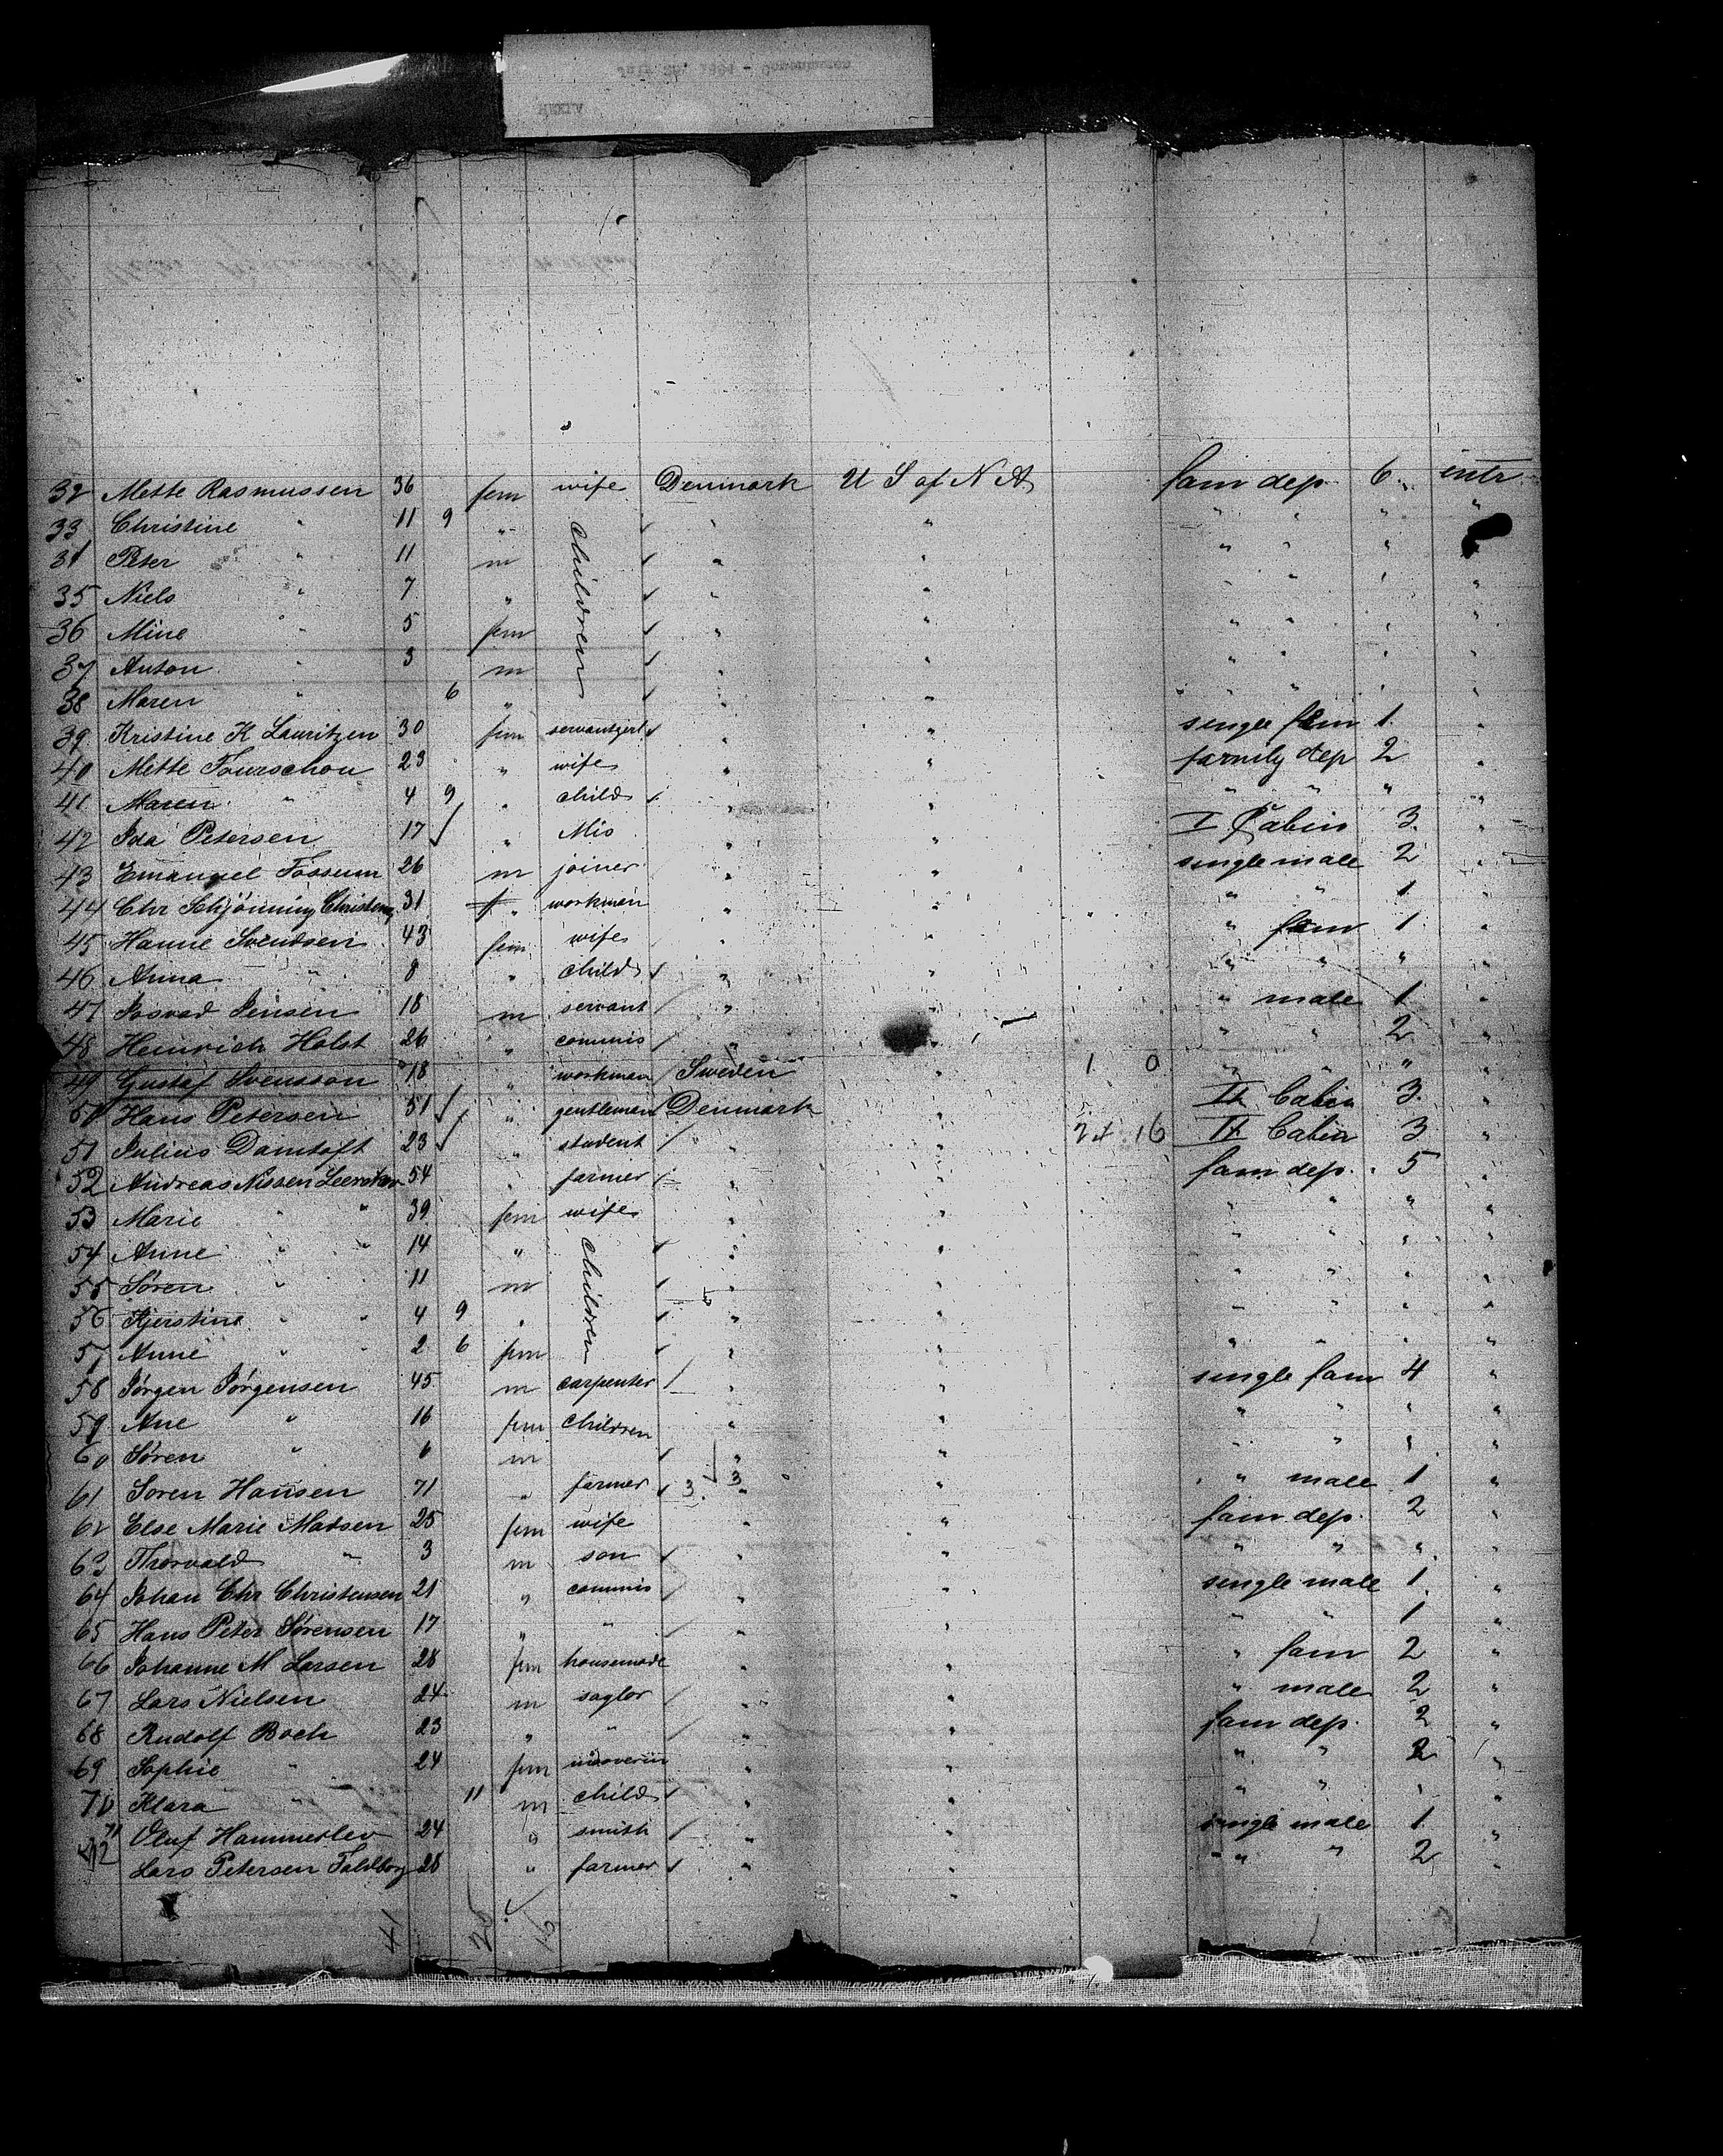 32 Mette Rasmussen 36 fem wife Denmark U S of N A fam dep. 6. intr
33 Christine " 11 9 " children " " " " " "
34 Peter " 11 m " " " " " "
35 Niels " 7 " " " " " " "
36 Mine " 5 fem " " " " " "
37 Anton " 3 m " " " " " "
38 Maren " 6 " " " " " " "
39 Kristine K Lauritzen 30 fem servantgirl " " single fem 1. "
40 Mette Fourschou 23 " wife " " family dep 2 "
41 Maren " 4 9 " child " " " " " "
42 Ida Petersen 17 " Mis " " I Cabin 3. "
43 Emanuel Fossum 26 m joiner " " single male 2 "
44 Chr Schjönning Christens 31 " workman " " " " 1 "
45 Hanne Svendsen 43 fem wife " " " fem 1. "
46 Anna " 8 " child " " " " " "
47 Jensen 18 m servant " " " male 1 "
48 Heinrich Holst 26 " commis " " " " 2 "
49 Gustaf Svensson 18 " workman Sweden " 1 0 " " " "
50 Hans Petersen 51 " gentleman Denmark " II Cabin 3. "
51 Julius Damtoft 23 " student " " 24 16 II Cabin 3 "
52 Andreas Nissen 54 " farmer " " fam dep. 5 "
53 Marie " " 39 fem wife " " " " " "
54 Anne " " 14 " children " " " " " "
55 Søren " " 11 m " " " " " "
56 Kjerstine " " 4 9 " " " " " " "
57 Anne " " 2 6 fem " " " " " "
58 Jørgen Jørgensen 45 m carpenter " " single fam 4 "
59 Ane " 16 fem children " " " " " "
60 Søren " 6 m " " " " " "
61 Soren Hansen 71 " farmer 3 3 " " " male 1 "
62 Else Marie Madsen 25 fem wife " " fam dep. 2 "
63 Thorvald " 3 m son " " " " " "
64 Johan Chr Christensen 21 " commis " " single male 1. "
65 Hans Peter Sørensen 17 " " " " " " 1 "
66 Johanne M Larsen 28 fem housemade " " " fam 2 "
67 Lars Nielsen 24 m saylor " " " male 2 "
68 Rudolf Boch 23 " " " " fam dep. 2 "
69 Sophie " 24 fem " " " " 2 "
70 Klara " 11 m child " " " " " "
71 Oluf Hammerlev 24 " smith " " single male 1 "
72 Lars Petersen Faldborg 28 " farmer " " " " 2 "
41 25